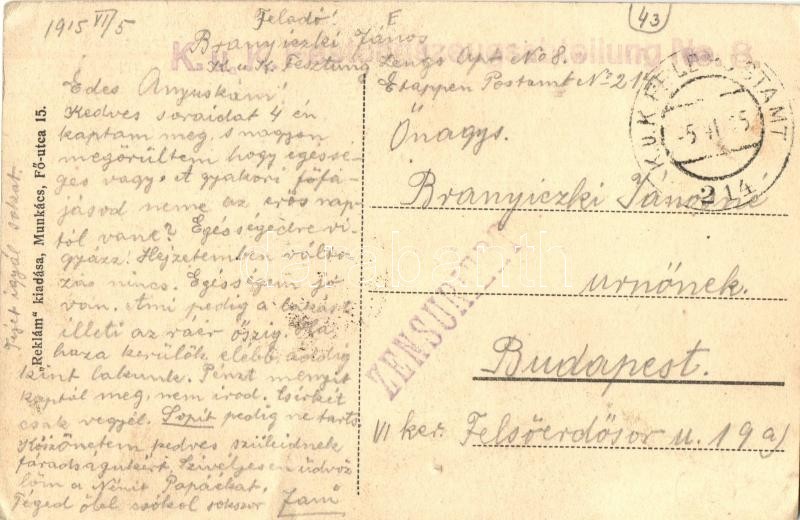 1915 VI/5
Feladó:
Branyiczki János
K. u. K. Festung
Etappen Postamt No 214
43
ZENSURIERT
K. u. K.
214
Édes Anyuskám!
Kedves soraidat 4 én
kaptam meg, s nagyon
megörültem hogy egéssé-
ges vagy. A gyakori főfá-
jásod neme az erős nap-
tól vane? Egésségedre vi-
gyázz! Hejzetemben válto-
zás nincs. Egésségem jól
van. Ami pedig a lakást
illeti az ráér őszig. Ha
haza kerülök elébb addig
kint lakunk. Pénzt menyit
kaptál meg, nem irod. Csirkét
csak vegyél. pedig ne tarts
Köszönetem kedves szüleidnek
fáradságukért. Szivélyesen üdvöz
löm a Nénit Papáékat.
Téged ölel csókol sokszor
Tejet igyál sokat.
„Reklám" kiadása, Munkács, Fő-utca 15.
Őnagys.
Branyiczki Jánosné
urnőnek.
Budapest.
VI ker. Felsőerdősor u. 19 a)